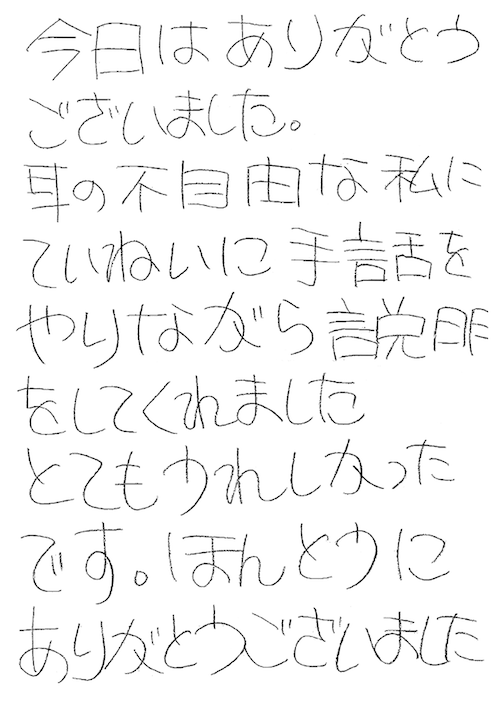 今日はありがとう
ございました。
耳の不自由な私に
ていねいに手話を
やりながら説明
をしてくれました
とてもうれしかった
です。ほんとうに
ありがとうございました